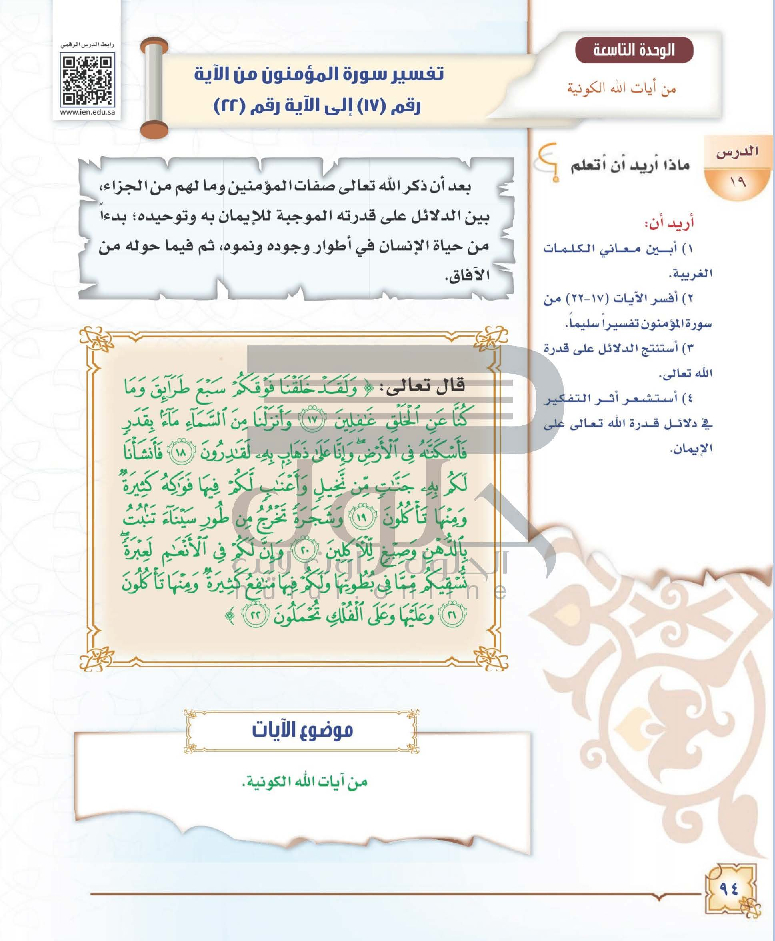 رابط الدرس الرقمي
www.ien.edu.sa
الوحدة التاسعة
من آيات الله الكونية
تفسير سورة المؤمنون من الآية
رقم (١٧) إلى الآية رقم (٢٢)
الدرس
١٩
ماذا أريد أن أتعلم
أريد أن:
١) أبــين معـاني الكلمـات
الغريبة.
٢) أفسر الآيات (١٧-٢٢) من
سورة المؤمنون تفسيراً سليماً.
٣) أستنتج الدلائل على قدرة
الله تعالى.
٤) أستشعر أثـر التفكير
في دلائـل قـدرة الله تعالى على
الإيمان.
بعد أن ذكر الله تعالى صفات المؤمنين وما لهم من الجزاء،
بين الدلائل على قدرته الموجبة للإيمان به وتوحيده؛ بدءاً
من حياة الإنسان في أطوار وجوده ونموه، ثم فيما حوله من
الآفاق.
قال تعالى: ﴿ وَلَقَدْ خَلَقْنَا فَوْقَكُمْ سَبْعَ طَرَآئِقَ وَمَا
كُنَّا عَنِ ٱلْخَلْقِ غَٰفِلِينَ ١٧ وَأَنزَلْنَا مِنَ ٱلسَّمَآءِ مَآءًۢ بِقَدَرٍ
فَأَسْكَنَّٰهُ فِى ٱلْأَرْضِۖ وَإِنَّا عَلَىٰ ذَهَابٍۭ بِهِۦ لَقَٰدِرُونَ ١٨ فَأَنشَأْنَا
لَكُم بِهِۦ جَنَّٰتٍ مِّن نَّخِيلٍ وَأَعْنَٰبٍ لَّكُمْ فِيهَا فَوَٰكِهُ كَثِيرَةٌ
وَمِنْهَا تَأْكُلُونَ ١٩ وَشَجَرَةً تَخْرُجُ مِن طُورِ سَيْنَآءَ تَنۢبُتُ
بِٱلدُّهْنِ وَصِبْغٍ لِّلْءَاكِلِينَ ٢٠ وَإِنَّ لَكُمْ فِى ٱلْأَنْعَٰمِ لَعِبْرَةًۖ
نُّسْقِيكُم مِّمَّا فِى بُطُونِهَا وَلَكُمْ فِيهَا مَنَٰفِعُ كَثِيرَةٌ وَمِنْهَا تَأْكُلُونَ
٢١ وَعَلَيْهَا وَعَلَى ٱلْفُلْكِ تُحْمَلُونَ ٢٢ ﴾
موضوع الآيات
من آيات الله الكونية.
٩٤